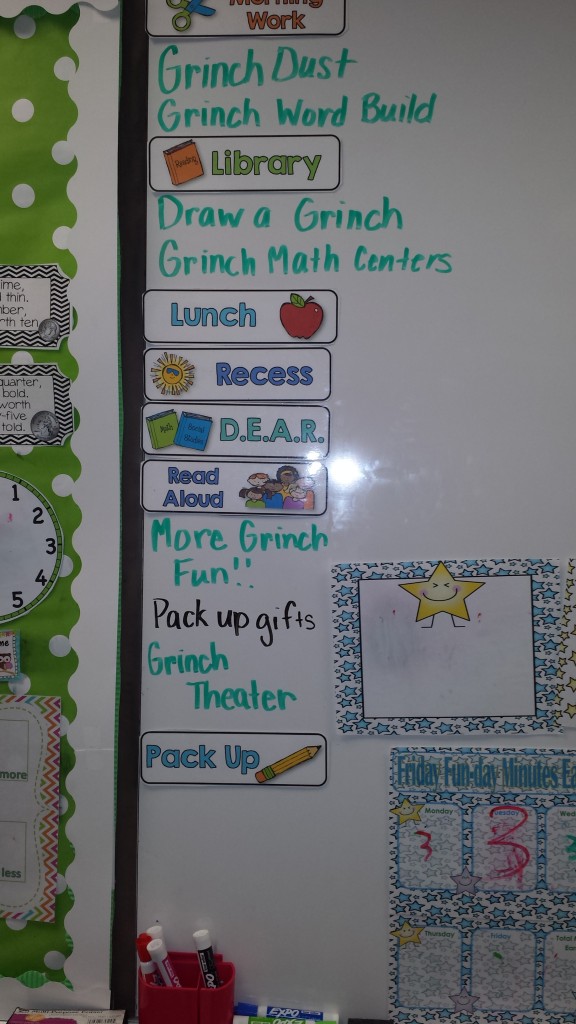 Morning
Work
Grinch Dust
Grinch Word Build
Reading
Library
Draw a Grinch
Grinch Math Centers
Lunch
Recess
Math
Social
Studies
D.E.A.R.
Read
Aloud
More Grinch
Fun!!
Pack up gifts
Grinch
Theater
Pack Up
ime,
thin.
ber,
rth ten
quarter,
bold.
worth
-five
told.
1
2
3
4
5
more
less
Friday Fun-day Minutes Ea
Monday
Tuesday
Wed
3
3
Thursday
Friday
Total
Ea
EXPO